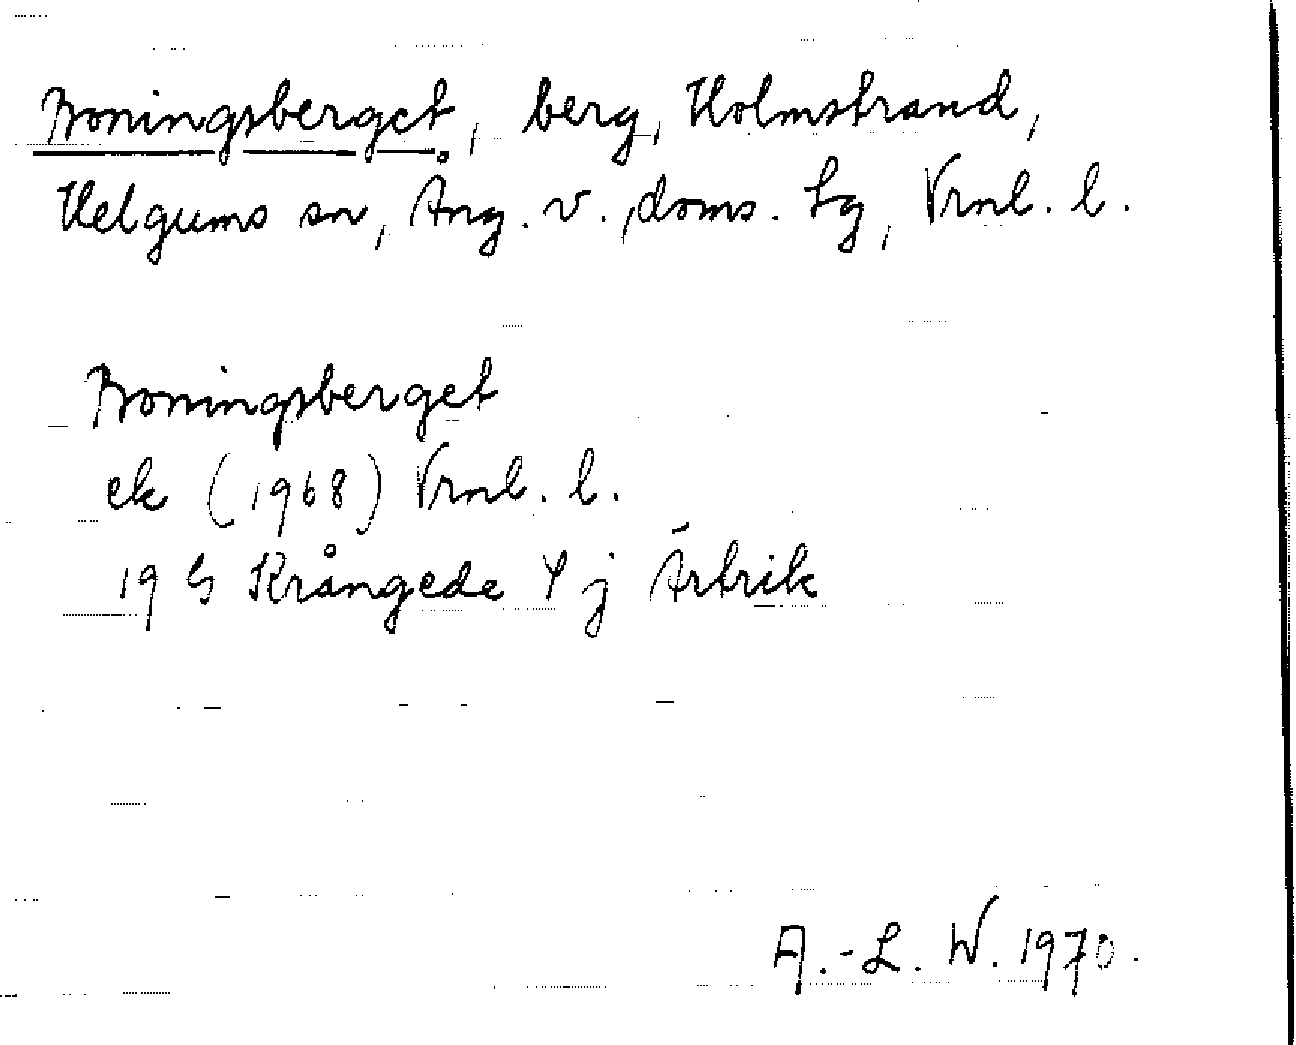 Boningsberget, berg, Holmstrand,
Helgums sn, Ång. v. doms. lg, Vrnl. l.
Boningsberget
ek (1968) Vrnl. l.
19 G Krångede Y j Ärtrik
A.-L. W. 1970.